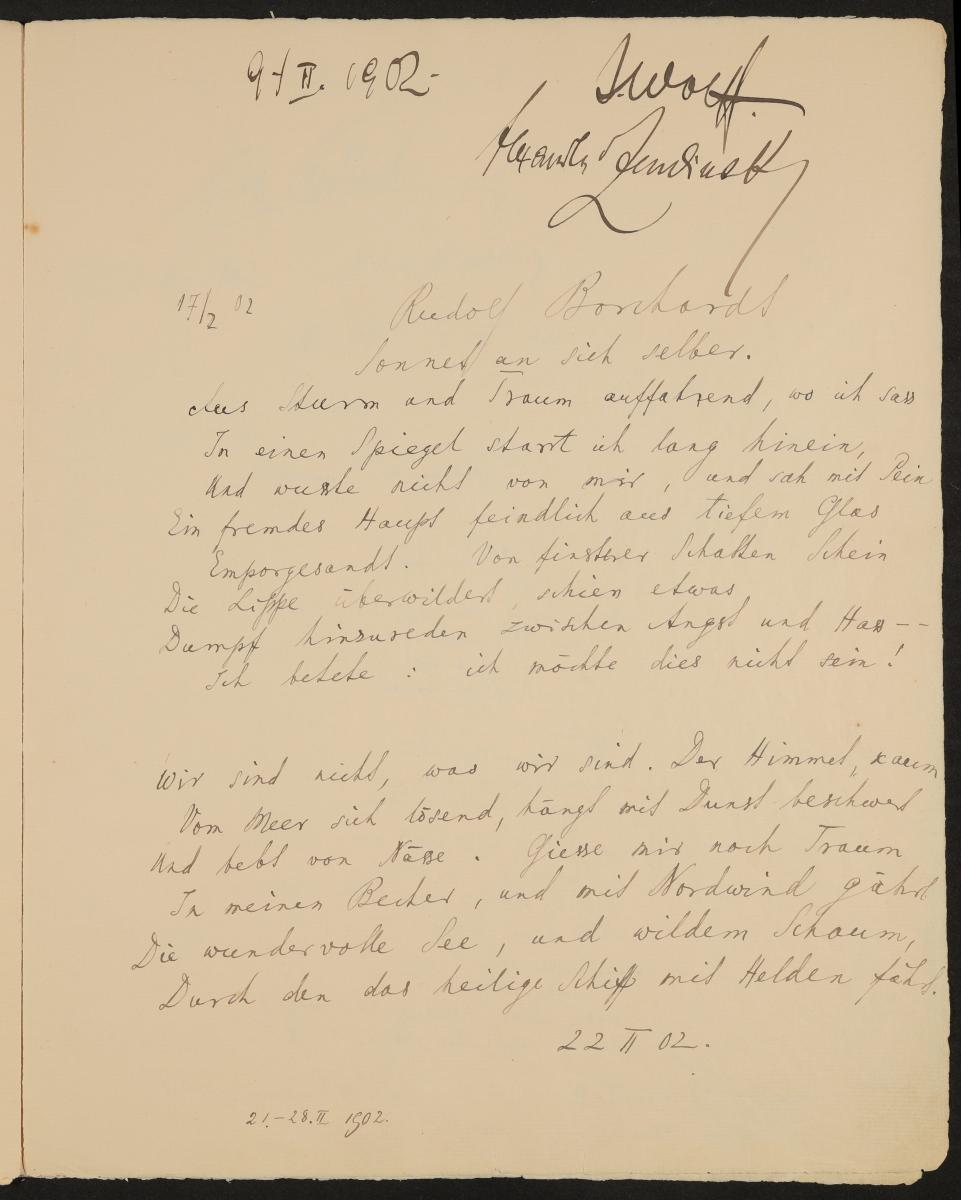 9/II. 1902-
Wolff.
Alexander Zemlinsky
17/2 02
Rudolf Borchardt
Sonnet an sich selber.
Aus Sturm und Traum auffahrend, wo ich sass
In einen Spiegel starrt ich lang hinein,
Und wusste nicht von mir, und sah mit Pein
Ein fremdes Haupt feindlich aus tiefem Glas
Emporgesandt. Von finsterer Schatten Schein
Die Lippe überwildert, schien etwas
Dumpf hinzureden zwischen Angst und Hass--
Ich betete: ich möchte dies nicht sein!
Wir sind nicht, was wir sind. Der Himmel, kaum
Vom Meer sich lösend, hängt mit Dunst beschwert
Und bebt von Nässe. Giesse mir noch Traum
In meinen Becher, und mit Nordwind gährt
Die wundervolle See, und wildem Schaum,
Durch den das heilige Schiff mit Helden fährt.
22 II 02.
21.-28.II 1902.